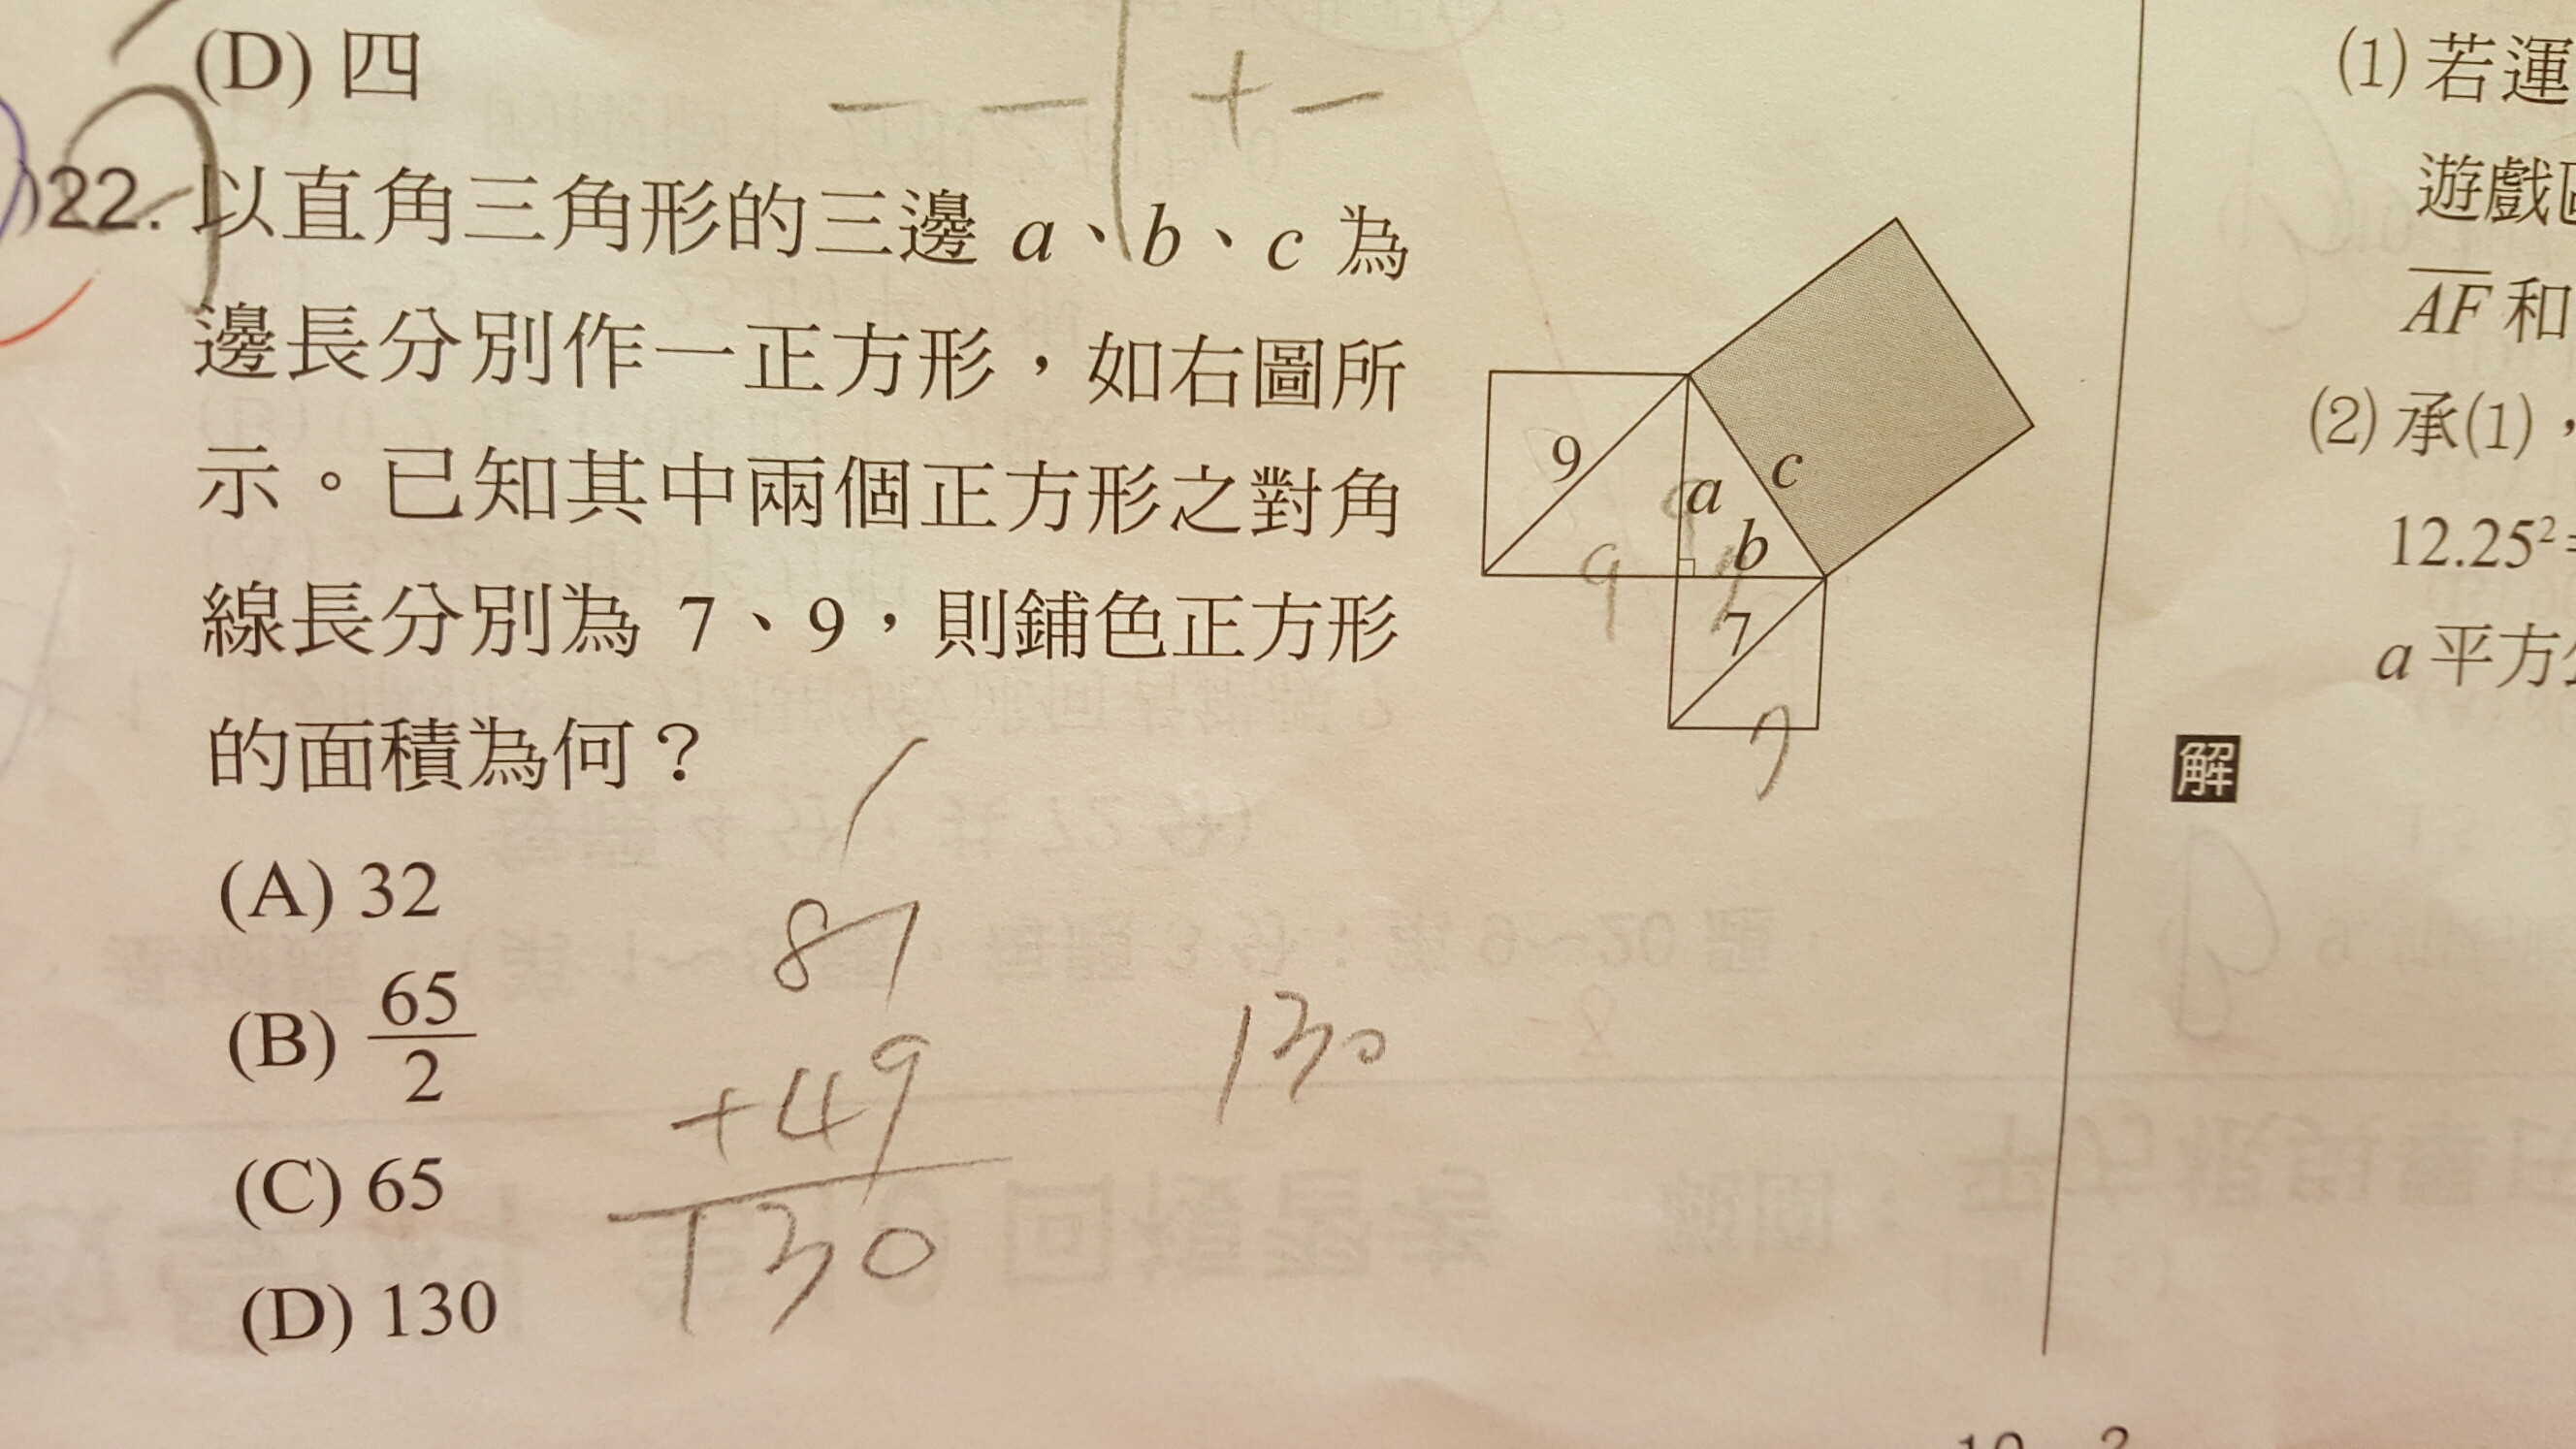 (D) 四
— — + —
22. 以直角三角形的三邊 a、b、c 為
邊長分別作一正方形，如右圖所
示。已知其中兩個正方形之對角
線長分別為 7、9，則鋪色正方形
的面積為何？
9
a
c
b
7
9
7
(A) 32
(B) 65/2
(C) 65
(D) 130
81
+49
130
130
(1) 若運
遊戲
AF 和
(2) 承(1)，
12.25²=
a 平方
解